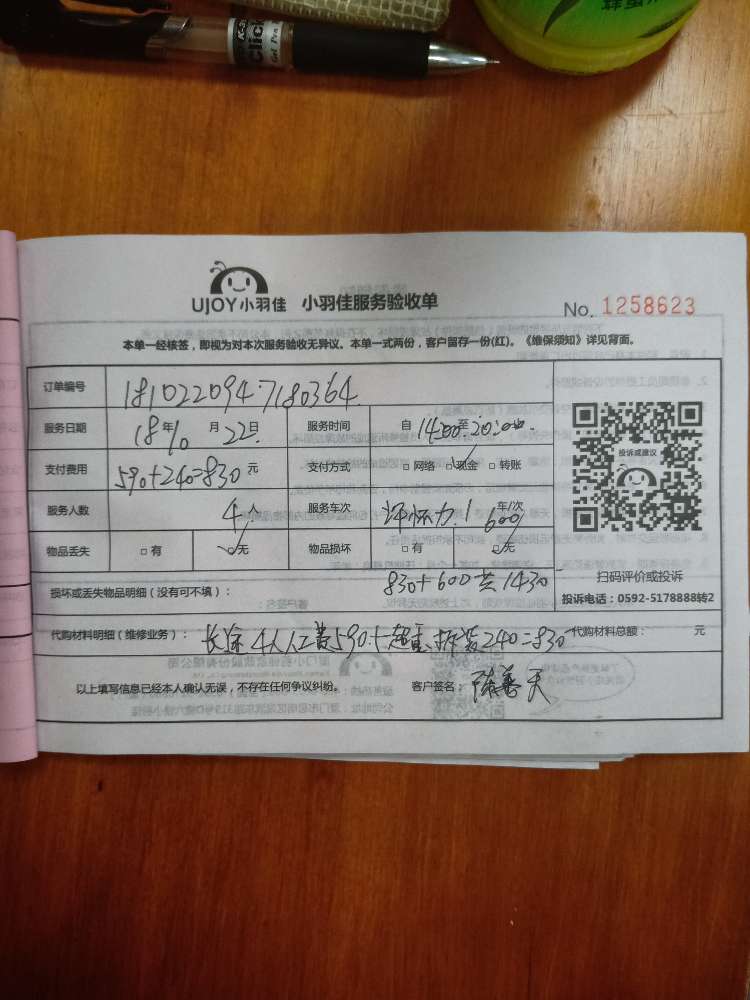 Click
Gel Pen
蜂蜜
UJOY小羽佳 小羽佳服务验收单
No. 1258623
本单一经核签，即视为对本次服务验收无异议。本单一式两份，客户留存一份(红)。《维保须知》详见背面。
订单编号 1810220947180364
服务日期 18年10月22日 服务时间 自14:00至20:00
支付费用 590+240=830元 支付方式 □网络 □现金 □转账
服务人数 4人 服务车次 1 600 车/次
物品丢失 □有 □无 物品损坏 □有 □无
830+600共1430
损坏或丢失物品明细（没有可不填）：
投诉或建议
扫码评价或投诉
投诉电话：0592-5178888转2
代购材料明细（维修业务）： 长途4人人工费590+超重.拆装240=830 代购材料总额： 元
以上填写信息已经本人确认无误，不存在任何争议纠纷。 客户签名：